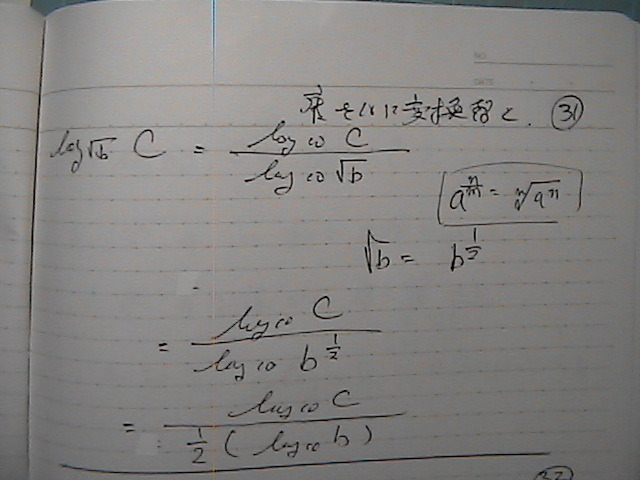 NO.
DATE
底を10に変換解く. ㉛
log√b C = log10 C / log10 √b
a^(n/m) = ⁿ√(aⁿ)
√b = b^(1/2)
= log10 C / log10 b^(1/2)
= log10 C / (1/2 (log10 b))